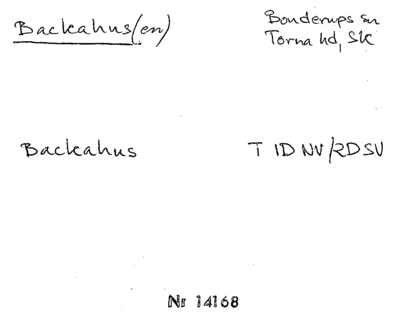 Backahus(en)
Bonderups sn
Torna hd, Sk
Backahus
T 1D NV/2D SV
Nr 14168